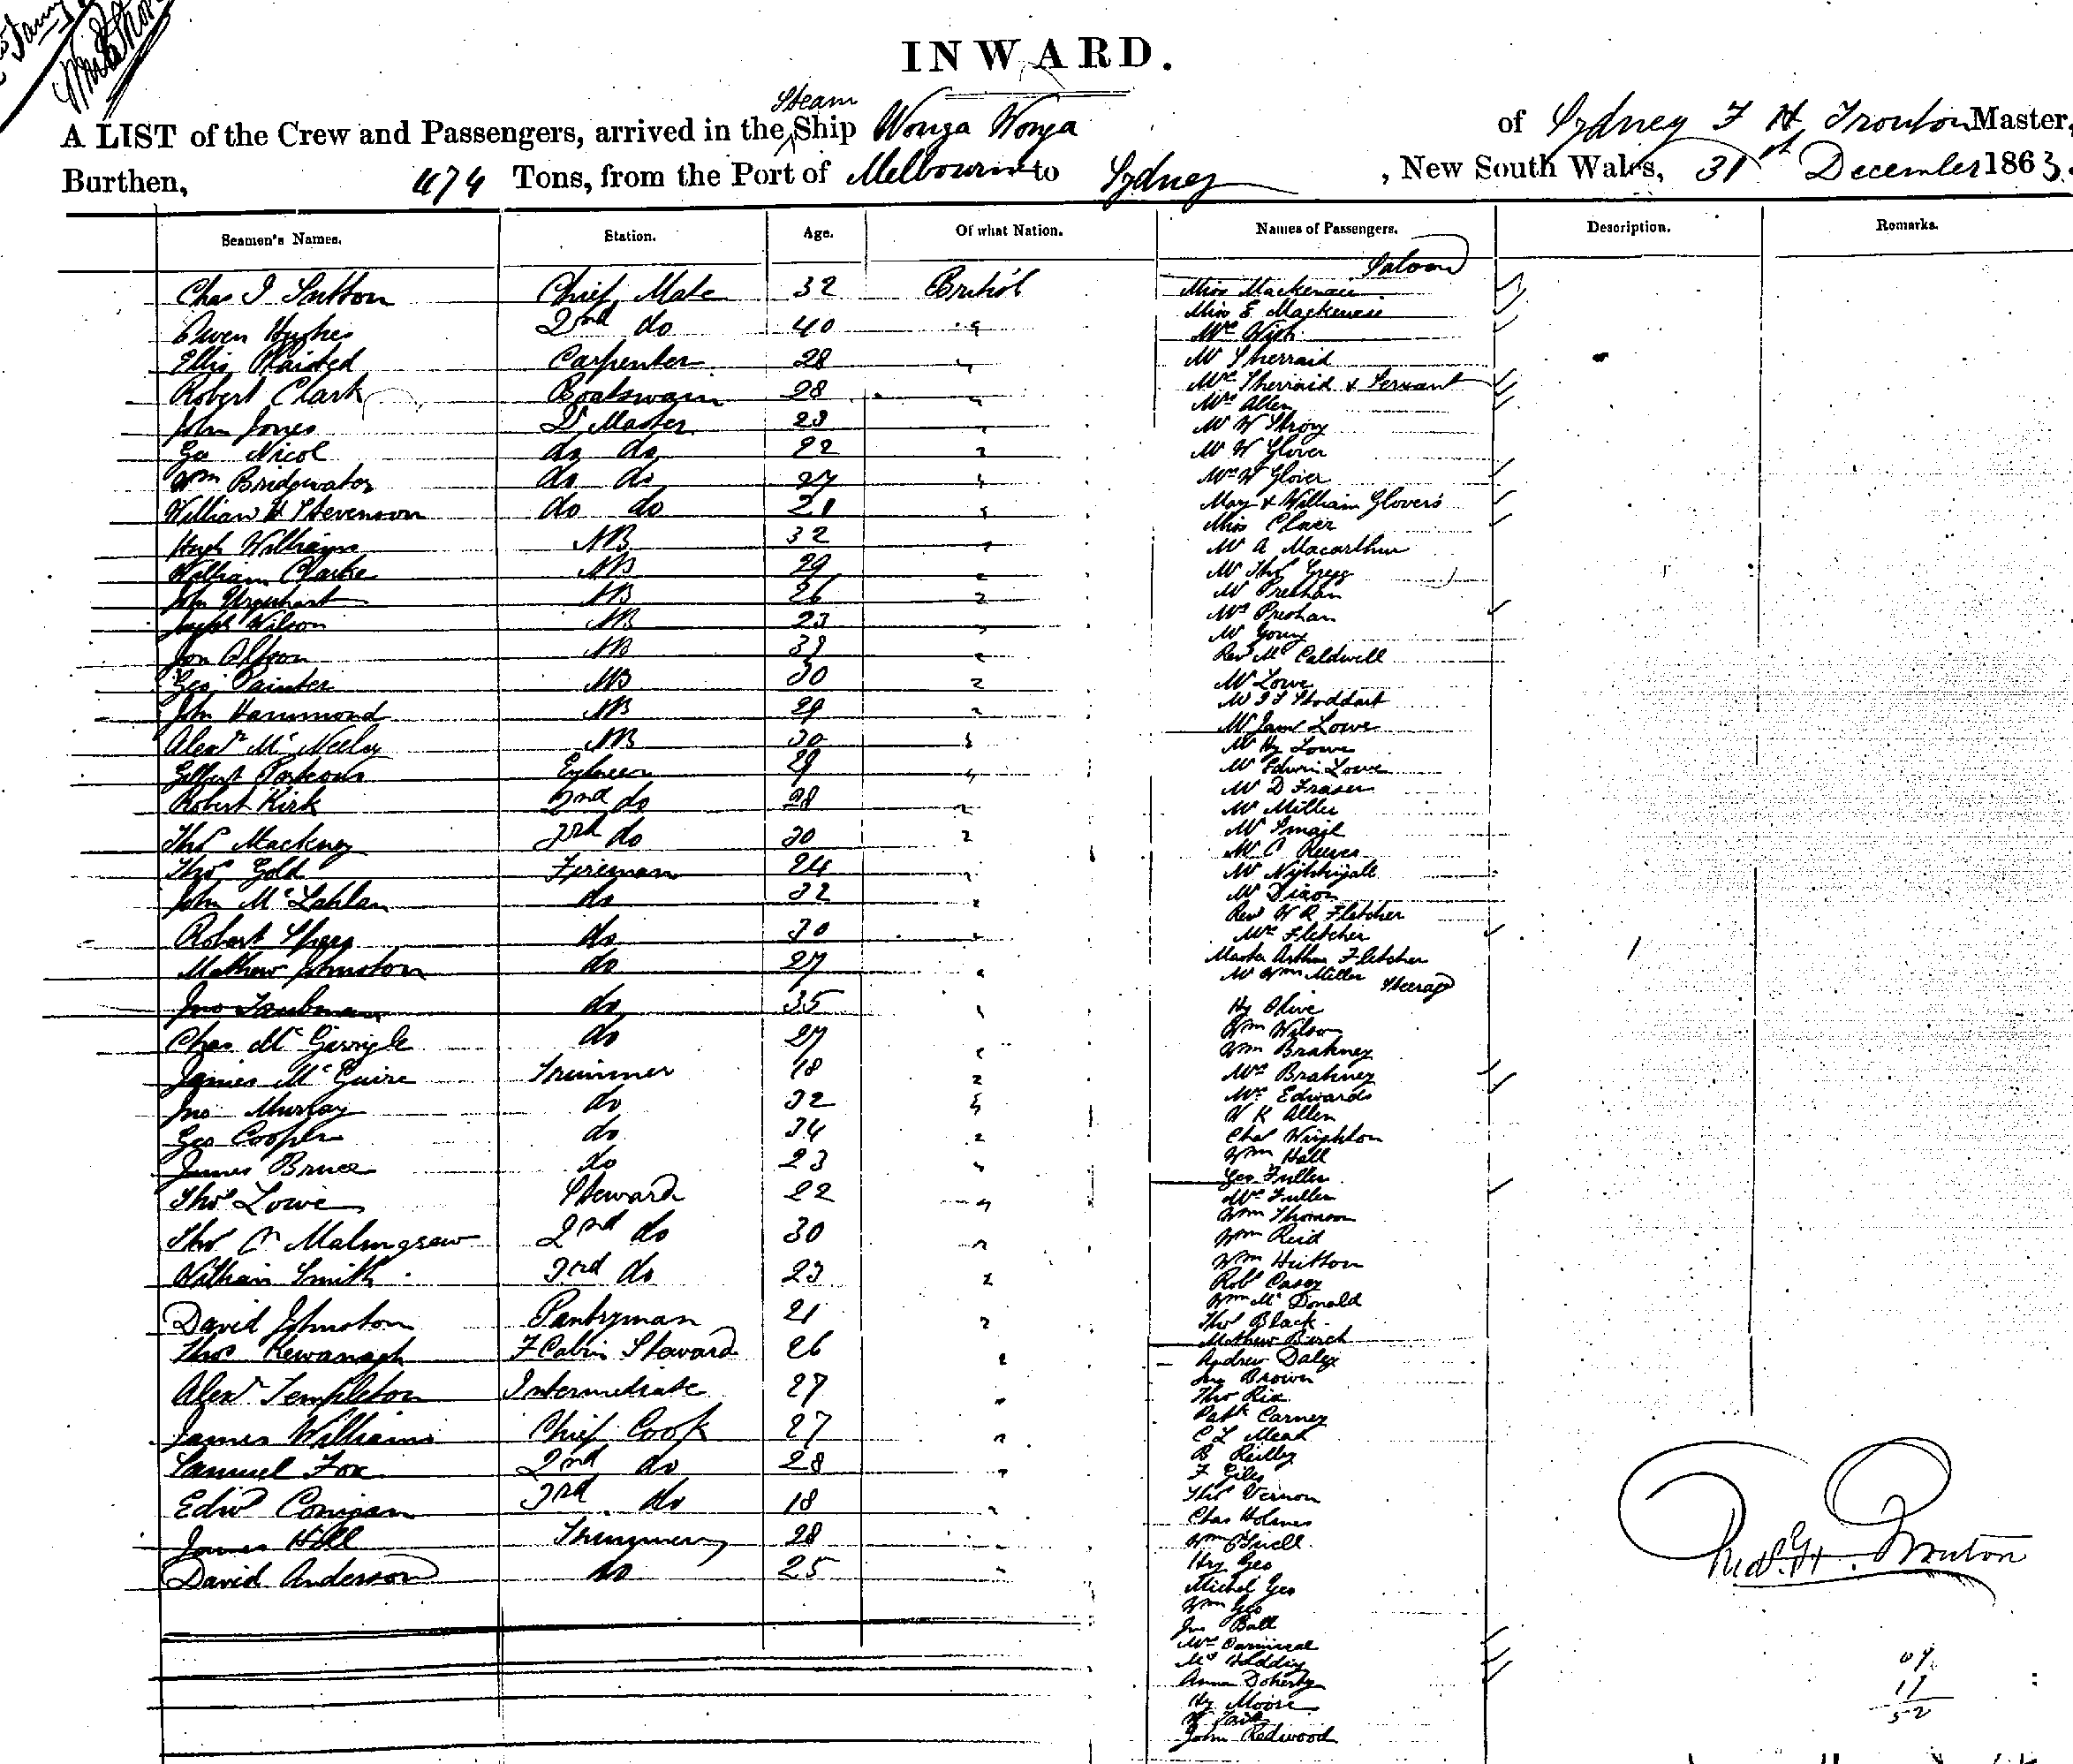 INWARD.
A LIST of the Crew and Passengers, arrived in the Steam Ship Wonga Wonga of Sydney F H Trouton Master,
Burthen, 474 Tons, from the Port of Melbourne to Sydney, New South Wales, 31st December 1863.
Seamen's Names. Station. Age. Of what Nation. Names of Passengers. Description. Remarks.
Chas J Sutton Chief Mate 32 British
Owen Hughes 2nd do 40 "
Ellis Plaisted Carpenter 28 "
Robert Clark Boatswain 28 "
John Jones Qr Master 23 "
Geo Nicol do do 22 "
Wm Bridgwater do do 27 "
William H Stevenson do do 21 "
Hugh Williams AB 32 "
William Clarke AB 29 "
John Urquhart AB 26 "
Joseph Wilson AB 23 "
Jon AB "
Geo Painter AB 30 "
John Hammond AB 29 "
Alexr McNeeley AB 30 "
Gilbert Engineer 29 "
Robert Kirk 2nd do 28 "
Thos Mackney 3rd do 30 "
Thos Gold Fireman 24 "
John McLahlan do 32 "
Robert Spiers do 30 "
Mathew Johnston do 27 "
Jno Taubman do 35 "
Chas McGarrigle do 27 "
James McGuire Trimmer 18 "
Jno Murray do 32 "
Geo Cooper do 34 "
James Bruce do 23 "
Thos Lowe Steward 22 "
Thos 2nd do 30 "
William Smith 3rd do 23 "
David Johnston Pantryman 21 "
Thos Kewanagh F Cabin Steward 26 "
Alexr Templeton Intermediate 27 "
James Williams Chief Cook 27 "
Samuel Fox 2nd do 28 "
Edwd Corrigan 3rd do 18 "
James Hill 28 "
David Anderson do 25 "
Saloon
Miss Mackenzie
Miss E Mackenzie
Mr Sherraid
Mrs Sherraid & Servant
Mrs Allen
Mr W Strong
Mr W Glover
Mrs W Glover
May & William Glovers
Miss
Mr A Macarthur
Mr Thos Gregg
Mr Preshan
Mrs Preshan
Mr Young
Revd Mr Caldwell
Mr Lowe
Mr Stoddart
Mr Jams Lowe
Mr Hy Lowe
Mr Edwin Lowe
Mr D Fraser
Mr Miller
Mr Smail
Mr C Reeves
Mr Nightingall
Mr Dixon
Revd W R Fletcher
Mrs Fletcher
Master Arthur Fletcher
Mr Wm Miller
Steerage
Hy Olive
Wm Wilson
Wm Brahney
Mrs Brahney
Mrs Edwards
W K Allen
Chas Wrighton
Wm Hall
Geo Fuller
Mrs Fuller
Wm Thomson
Wm Reid
Wm Hutton
Robt Casey
Wm McDonald
Thos Black
Mathew Birch
Andrew Daley
Jno Brown
Thos Rix
Patk Carney
C L Mead
B Reilly
F Giles
Thos Vernon
Chas Holmes
Wm
Hy Geo
Michel Geo
Wm Geo
Jno Ball
Mrs
Mrs
Anna Doherty
Hy Moore
W Tait
John Redwood
Fred. H. Trouton